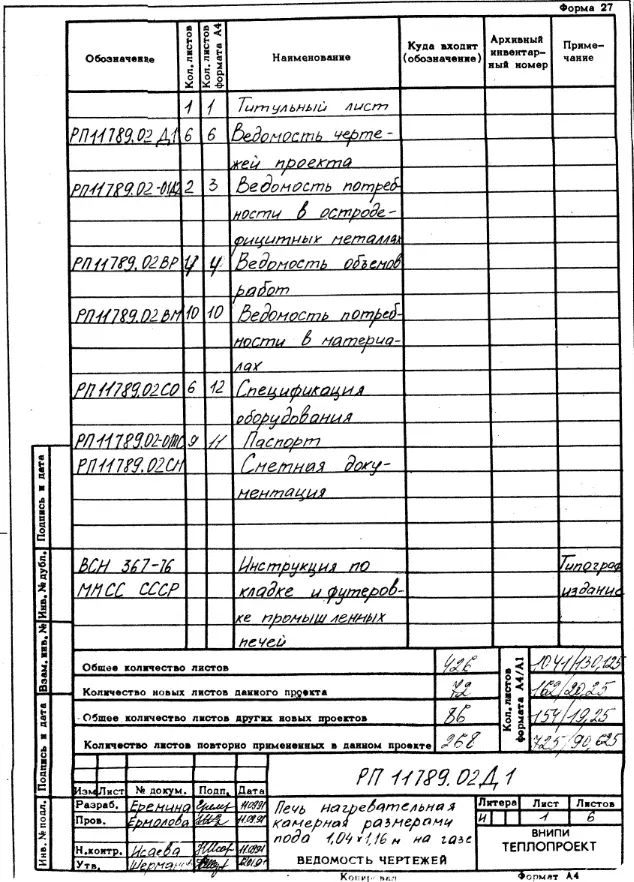 Форма 27
Обозначение Кол. листов Кол. листов формата А4 Наименование Куда входит (обозначение) Архивный инвентарный номер Примечание
1 1 Титульный лист
РП11789.02 Д1 6 6 Ведомость черте-
жей проекта
РП11789.02-01Д2 2 3 Ведомость потреб-
ности в остроде-
фицитных металлах
РП11789.02ВР 4 4 Ведомость объемов
работ
РП11789.02ВМ 10 10 Ведомость потреб-
ности в материа-
лах
РП11789.02СО 6 12 Спецификация
оборудования
РП11789.02-01ПС 9 11 Паспорт
РП11789.02СМ Сметная доку-
ментация
ВСН 367-76 Инструкция по Типограф
ММСС СССР кладке и футеров- издание
ке промышленных
печей
Общее количество листов 426 1041/130,125
Количество новых листов данного проекта 72 162/20,25
Общее количество листов других новых проектов 86 154/19,25
Количество листов повторно примененных в данном проекте 268 725/90,625
Кол. листов формата А4/А1
Подпись и дата
Инв. № дубл.
Взам. инв. №
Подпись и дата
Инв. № подл.
РП 11789.02Д1
Изм Лист № докум. Подп. Дата
Разраб. Еремина
Пров. Ермолова
Н.контр. Исаева
Утв.
Печь нагревательная
камерная размерами
пода 1,04×1,16 м на газе
ВЕДОМОСТЬ ЧЕРТЕЖЕЙ
Литера Лист Листов
И 1 6
ВНИПИ
ТЕПЛОПРОЕКТ
Формат А4